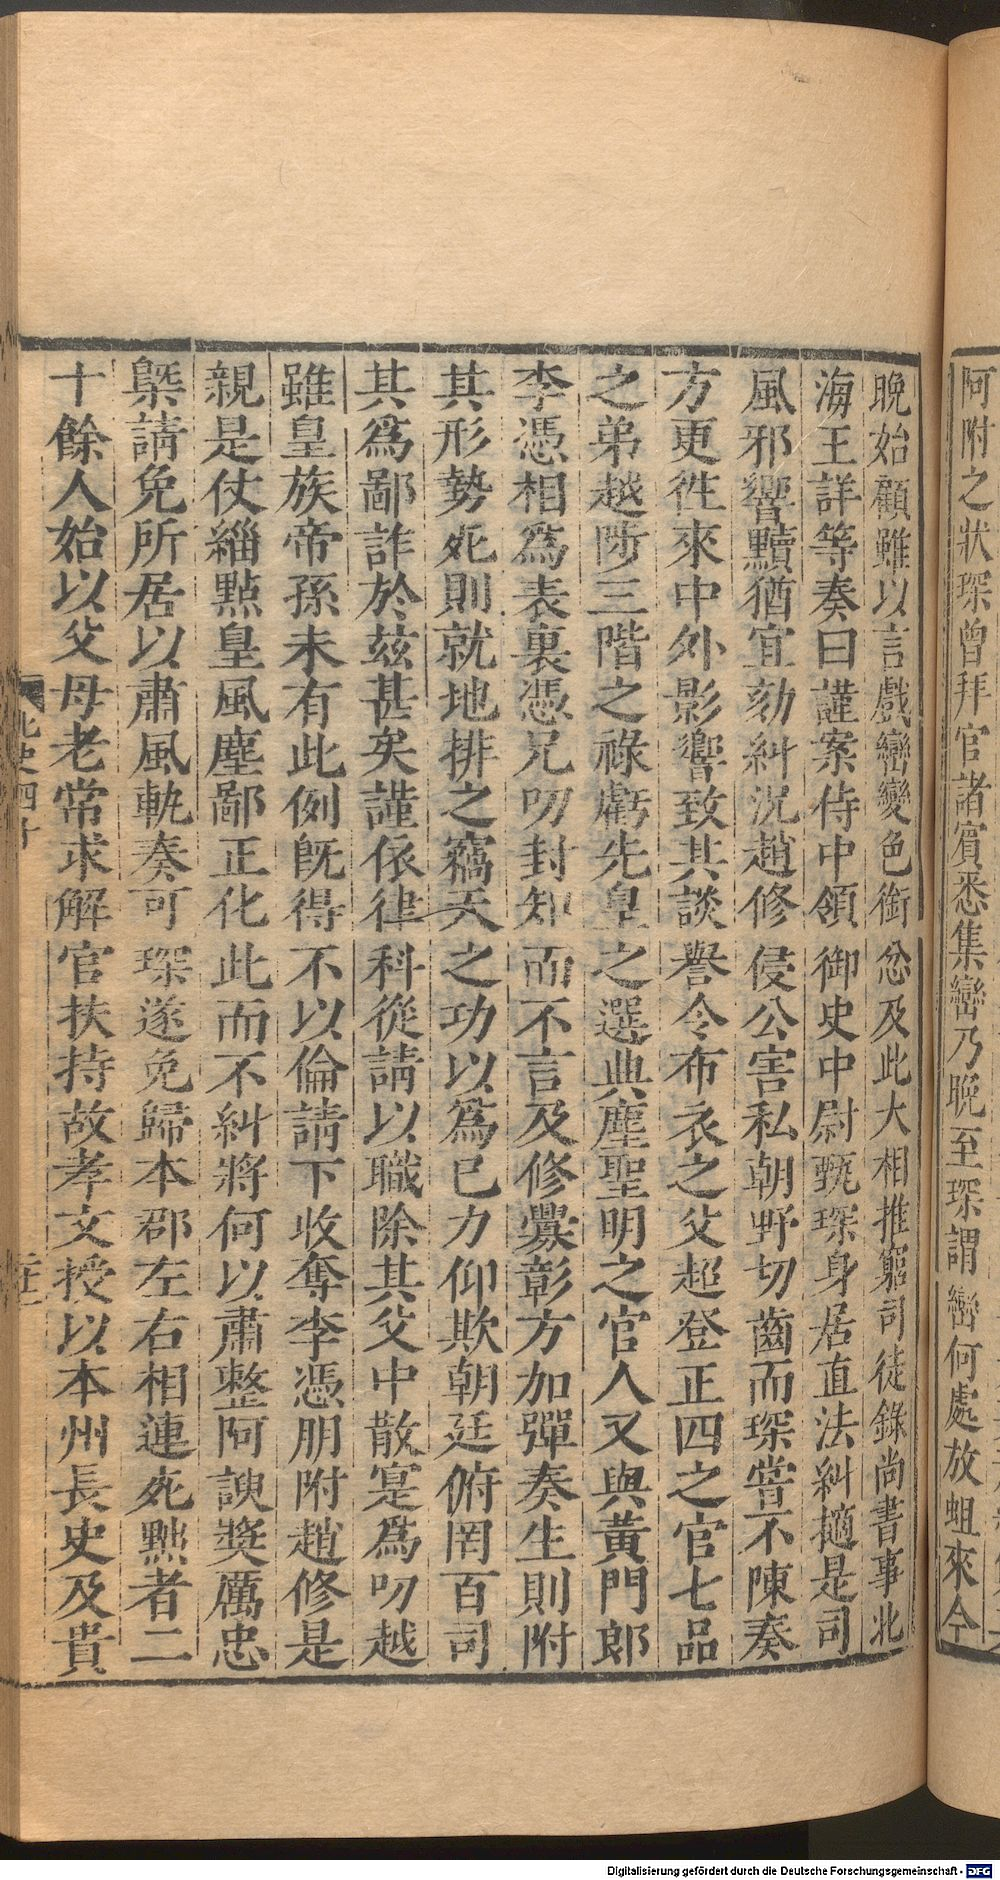 阿附之狀琛曾拜官諸賓悉集巒乃晚至琛謂巒何處放蛆來今
晚始顧雖以言戲巒變色銜忿及此大相推窮司徒錄尚書事北
海王詳等奏曰謹案侍中領御史中尉甄琛身居直法糾擿是司
風邪響黷猶宜劾糾況趙修侵公害私朝野切齒而琛嘗不陳奏
方更徃來中外影響致其談譽令布衣之父超登正四之官七品
之弟越陟三階之祿虧先皇之選典塵聖明之官人又與黃門郎
李憑相爲表裏憑兄叨封知而不言及修釁彰方加彈奏生則附
其形勢死則就地排之竊天之功以爲已力仰欺朝廷俯罔百司
其爲鄙詐於兹甚矣謹依律科從請以職除其父中散寔爲叨越
雖皇族帝孫未有此例旣得不以倫請下收奪李憑朋附趙修是
親是仗緇點皇風塵鄙正化此而不糾將何以肅整阿諛獎厲忠
槩請免所居以肅風軌奏可琛遂免歸本郡左右相連死黜者二
十餘人始以父母老常求解官扶持故孝文授以本州長史及貴
北史四十
Digitalisierung gefördert durch die Deutsche Forschungsgemeinschaft - DFG